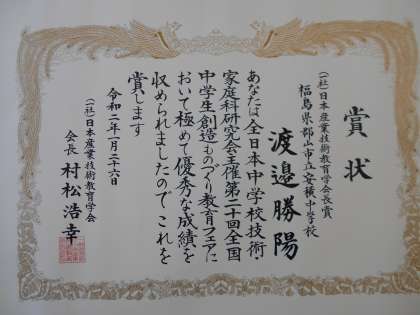 賞状
(一社)日本産業技術教育学会長賞
福島県郡山市立安積中学校
渡邉勝陽
あなたは全日本中学校技術・
家庭科研究会主催第二十回全国
中学生創造ものづくり教育フェアに
おいて極めて優秀な成績を
収められましたのでこれを
賞します
令和二年一月二十六日
(一社)日本産業技術教育学会
会長 村松浩幸